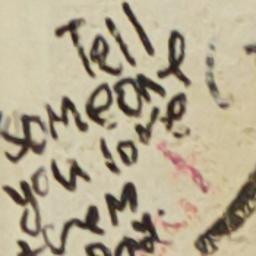 Tell
someone
you love
them